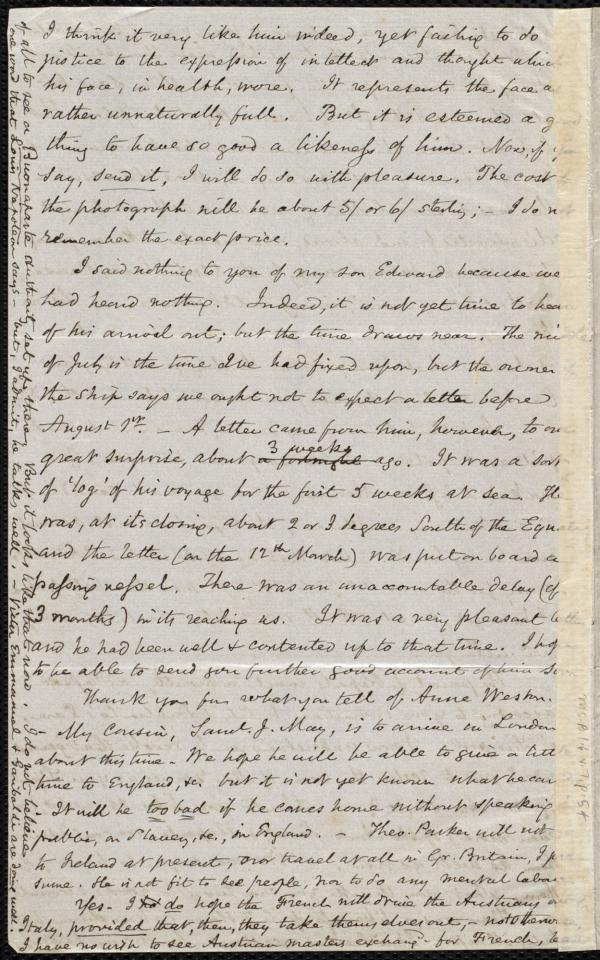 I think it very like him indeed, yet failing to do
justice to the expression of intellect and thought which
his face, in health, wore. It represents the face a
rather unnaturally full. But it is esteemed a g
thing to have so good a likeness of him. Now, if y
say, send it, I will do so with pleasure. The cost
the photograph will be about 5/ or 6/ sterling; - I do n
remember the exact price.
I said nothing to you of my son Edward because we
had heard nothing. Indeed, it is not yet time to hea
of his arrival out; but the time draws near. The mi
of July is the time I've had fixed upon, but the owner
the ship says we ought not to expect a letter before
August 1st. - A letter came from him, however, to ou
great surprise, about a fortnight 3 weeks ago. It was a sort
of 'log' of his voyage for the first 5 weeks at sea. He
was, at its closing, about 2 or 3 degrees South of the Equa
and the letter (on the 12th March) was put on board a
passing vessel. There was an unaccountable delay (of
3 months) in its reaching us. It was a very pleasant lett
and he had been well & contented up to that time. I hop
to be able to send you further good account of him so
Thank you for what you tell of Anne Weston.
- My cousin, Saml. J. May, is to arrive in London
about this time. We hope he will be able to give a litt
time to England, &c. but it is not yet known what he can
- It will be too bad if he comes home without speaking
public, on Slavery, &c., in England. - Theo. Parker will not
to Ireland at present, nor travel at all in Gr. Britain, I p
sume. He is not fit to see people, nor to do any mental labou
Yes - I do hope the French will drive the Austrians o
Italy, provided that, then, they take themselves out, - not otherwise
I have no wish to see Austrian masters exchang for French, le
of all to see a Buonaparte dynasty set up there. But it looks like that now. I do not believe
one word that Louis Napoleon says - but, I admit, he talks well. - Victor Emmanuel & Garibaldi are doing well.